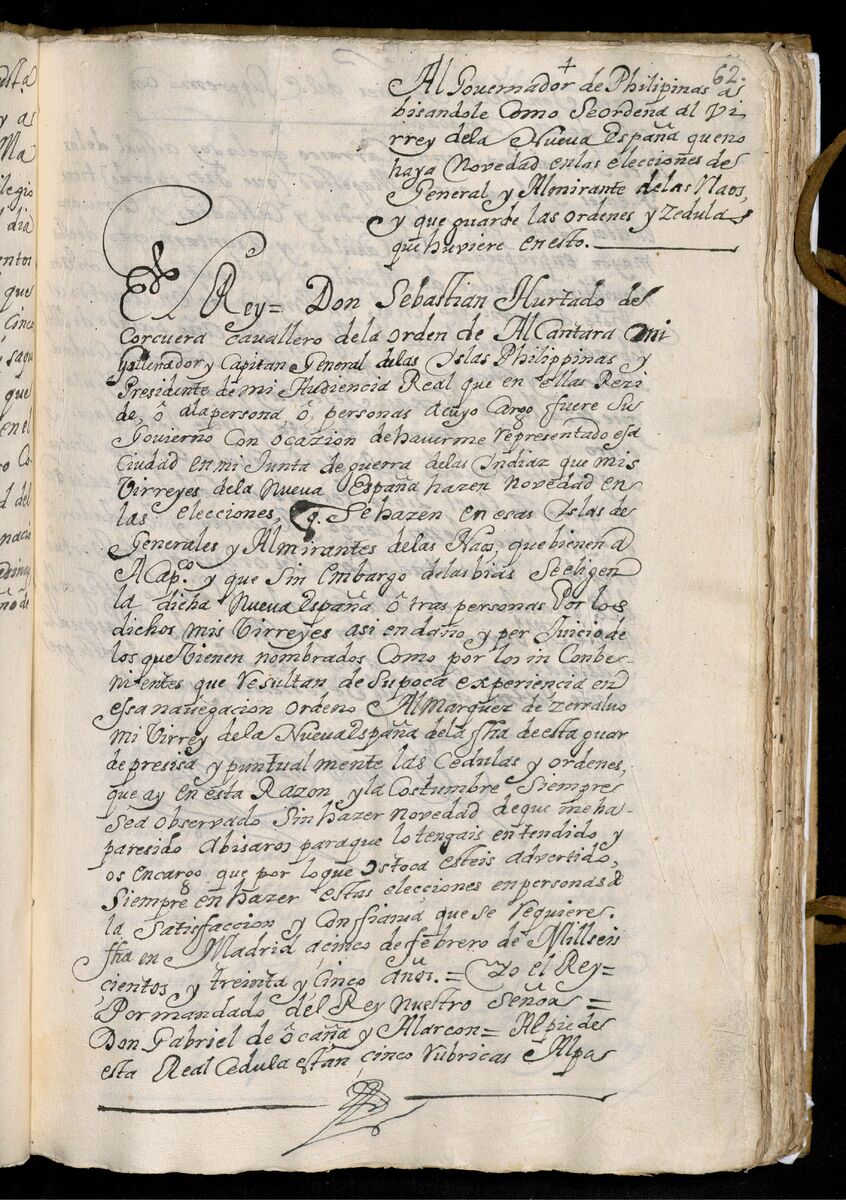 62.
Al Governador de Philipinas as
bisandole Como Seordena al Vi
rrey dela Nueva España queno
haya Novedad enlas elecciones de
General y Almirante delas Naos,
y que guarde las ordenes y Zedulas
que huviere en esto.
El Rey= Don Sebastian Hurtado de
Corcuera cavallero dela orden de AlCantara mi
Governador y Capitan General delas Islas Philippinas y
Presidente de mi Audiencia Real que en ellas Rezi
de, ô alapersona ô personas acuyo Cargo fuere Su
Govierno Con ocazion dehaverme representado esa
Ciudad en mi Junta de guerra delas Indiaz que mis
Virreyes dela Nueva España hazen Novedad en
las elecciones, q. Sehazen en esas Islas de
Generales y Almirantes delas Naos, que bienen â
Acapco. y que Sin embargo delasbias Seeligen
la dicha Nueva España ôtras personas Por los
dichos mis Virreyes asi en daño, y per Juicio de
los que Vienen nombrados Como por los in Conbe-
nientes que resultan de Supoca experiencia en
essa navegacion ordeno Al Marquez de Zerralvo
mi Virrey dela Nueva España dela fha de esta guar
de presisa y puntual mente las Cedulas y ordenes,
que ay en esta Razon y la Costumbre Siempre
Sea observado Sin hazer Novedad deque meha-
paresido Abisaros paraque lo tengais entendido y
os encargo que por loque ostoca esteis advertido,
Siempre en hazer estas elecciones enpersonas d
la Satisfaccion y Confianza que se requiere.
fha en Madrid acinco de febrero de Millseis
cientos y treinta y Cinco años. = Yo el Rey=
Por mandado del Rey Nuestro Señor =
Don Gabriel de ôcaña y Alarcon= Alpie de
esta Real Cedula están cinco rubricas Alpas